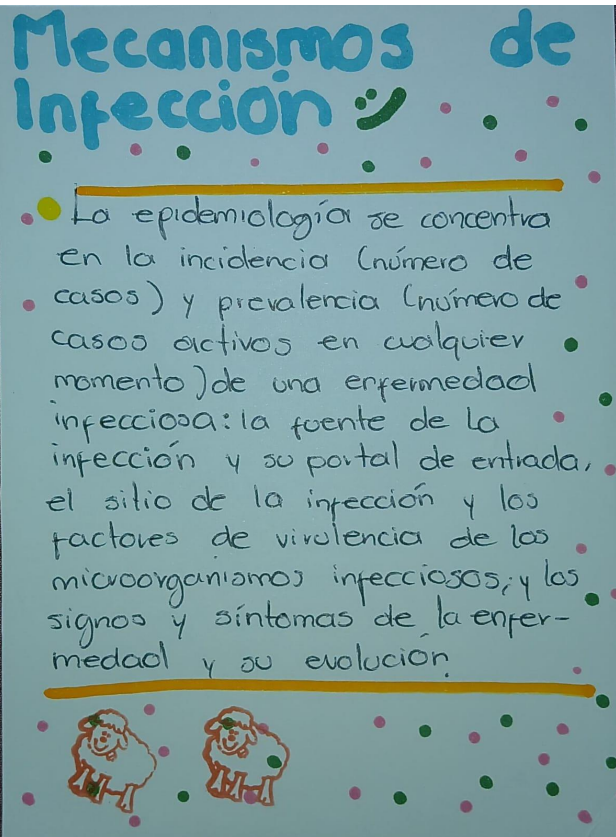 Mecanismos de
Infección
La epidemiología se concentra
en la incidencia (número de
casos) y prevalencia (número de
casos activos en cualquier
momento) de una enfermedad
infecciosa: la fuente de la
infección y su portal de entrada,
el sitio de la infección y los
factores de virulencia de los
microorganismos infecciosos; y los
signos y síntomas de la enfer-
medad y su evolución.